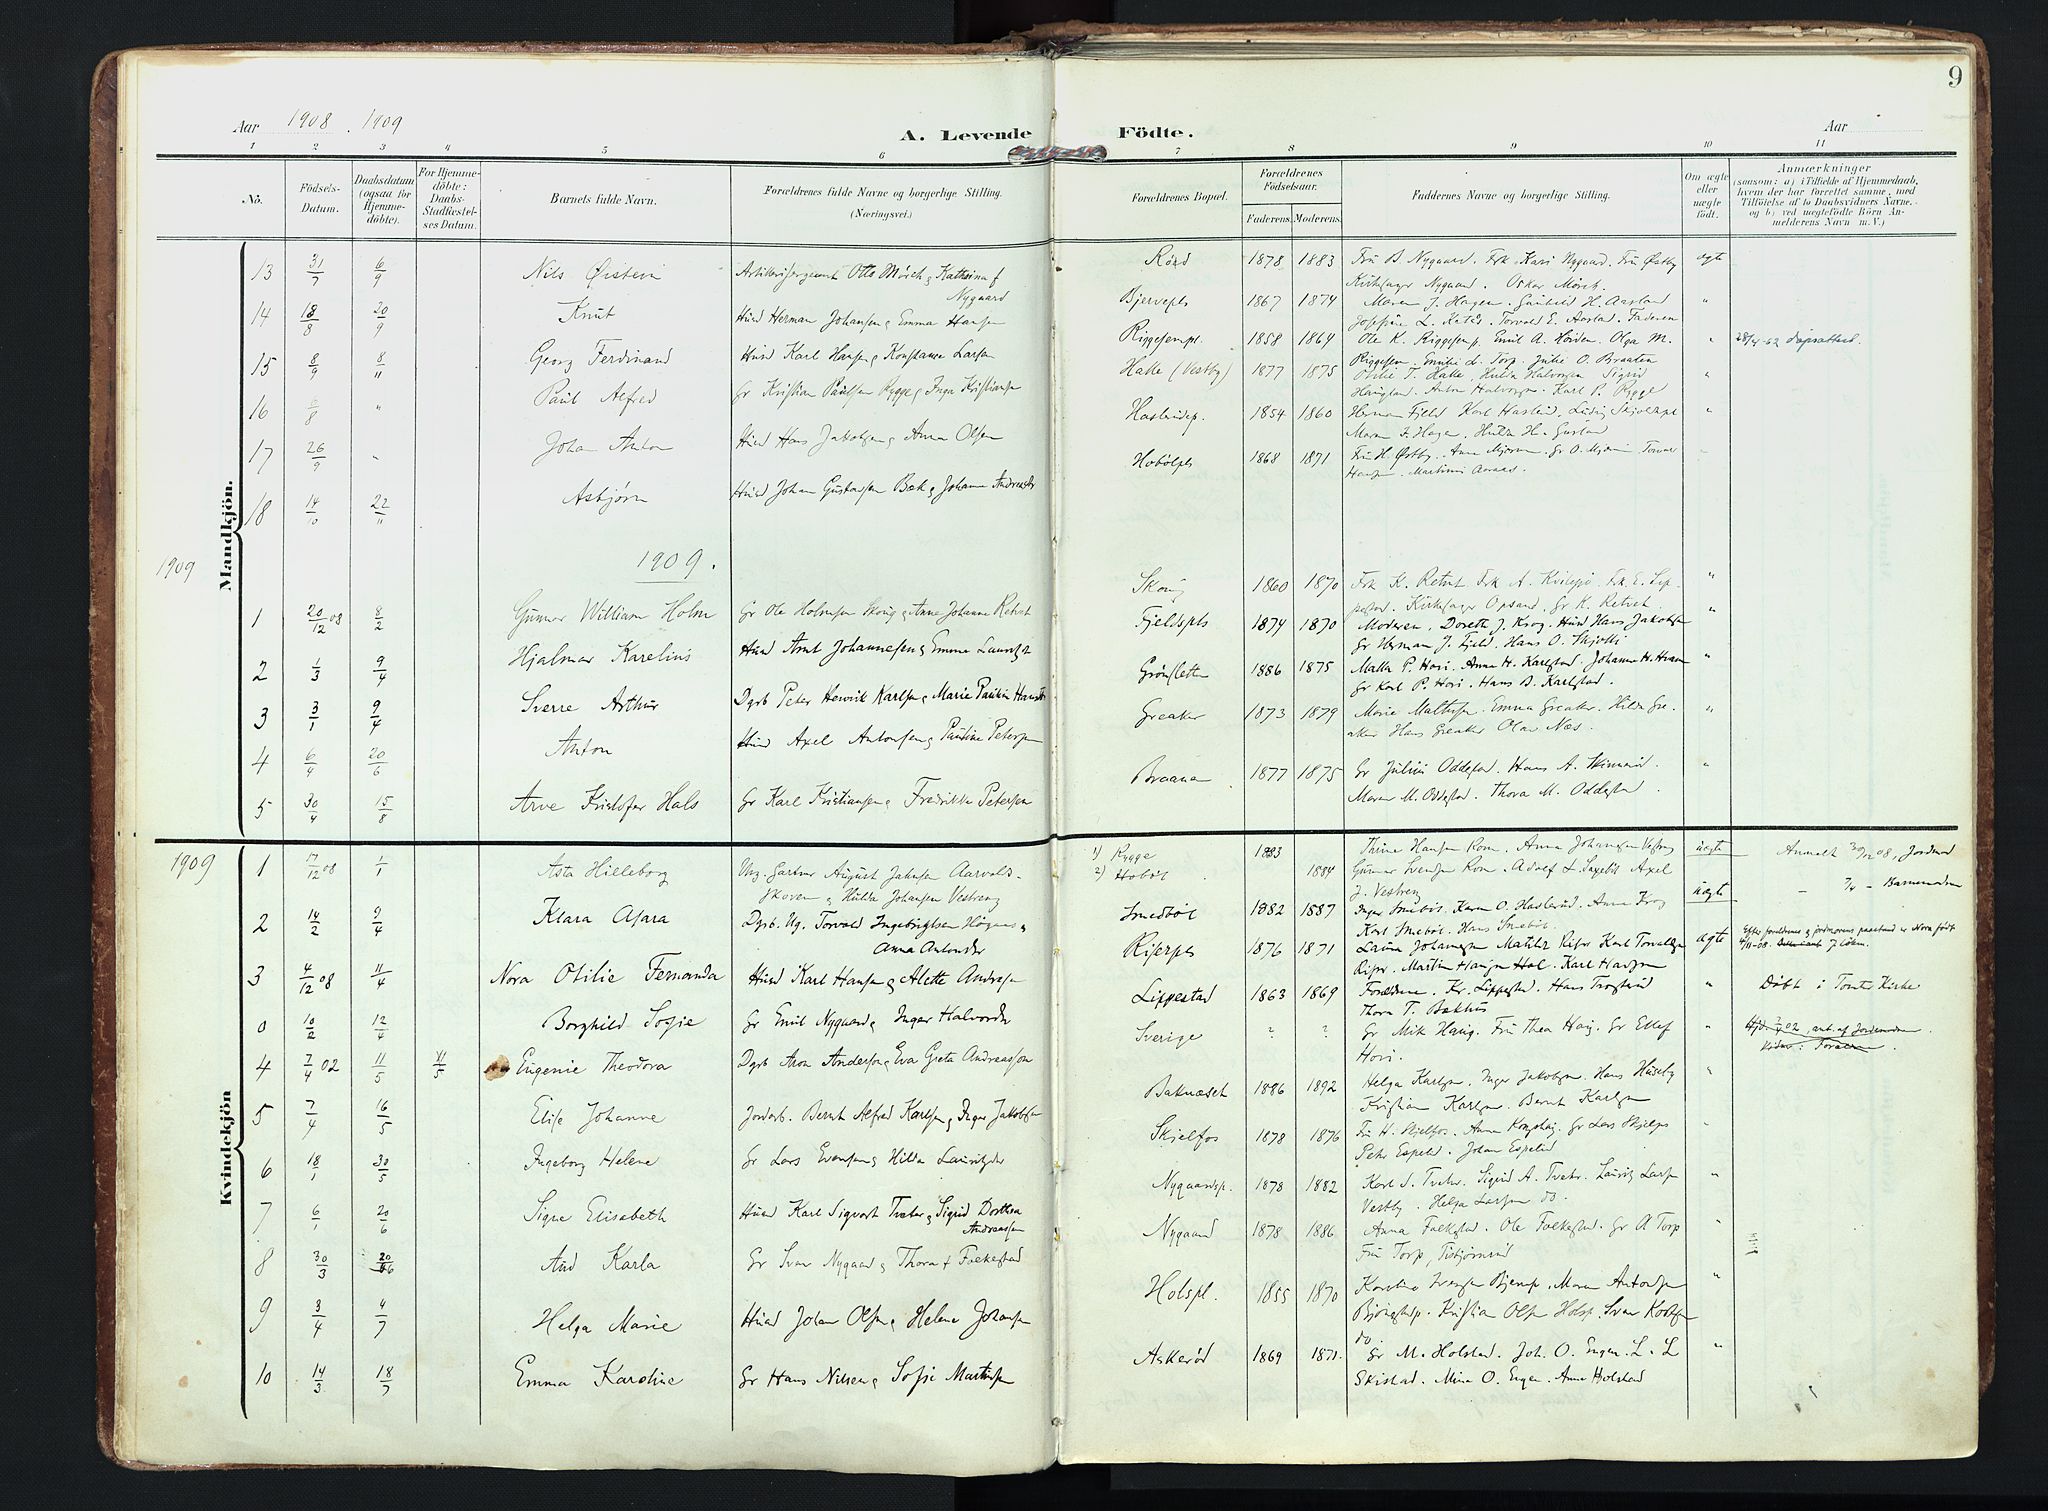 9
Aar 1908. 1909
A. Levende Födte.
Aar
1 2 3 4 5 6 7 8 9 10 11
No.
Födsels-Datum.
Daabsdatum (ogsaa for Hjemme-döbte).
For Hjemme-döbte: Daabs-Stadfæstel-ses Datum.
Barnets fulde Navn.
Forældrenes fulde Navne og borgerlige Stilling.
(Næringsvei.)
Forældrenes Bopæl.
Forældrenes Födselsaar.
Faderens. Moderens.
Faddernes Navne og borgerlige Stilling.
Om ægte eller uægte födt.
Anmærkninger
(saasom: a) i Tilfælde af Hjemmedaab,
hvem der har forrettet samme, med
Tilföielse af to Daabsvidners Navne,
og b) ved uægtefödte Börn An-
melderens Navn m. V.)
Mandkjön.
13 31/7 6/9 Nils Øistein Artillerisergeant Otto Mørch & Kathrina f Nygaard Röed 1878 1883 Fru B. Nygaard. Frk. Kari Nygaard. Fru Østby
Kirkesanger Nygaard. Oskar Mörch. ægte
14 18/8 20/9 Knut Husd Herman Johansen & Emma Hansen Bjervepls 1867 1874 Maren J. Hagen. Gunhild H. Aasland
Josefine L. Torvald E. Aasland. Faderen "
15 8/9 8/11 Georg Ferdinand Husd Karl Hansen & Konstanse Larsen Riggesenpl. 1858 1864 Ole K. Riggesenp. Emil A. Olga M.
Riggesen. Emilie L. Torp. Julie O. Braaten " 28/4-62 dåpsattest.
16 6/8 " Paul Alfred Gr Kristian Paulsen Rygge & Inga Kristiansen Halle (Vestby) 1877 1875 Otilie T. Halle. Hulda Halvorsen Sigrid
Haugland. Anton Halvorsen. Karl P. Rygge "
17 26/9 " Johan Anton Husd Hans Jakobsen & Anna Olsen Haslerudp. 1854 1860 Herman Fjeld Karl Haslerud. Ludvig
Maren F. Hagen. Hulda H. "
18 14/10 22/11 Asbjørn Husd Johan Gustavsen Bæk & Johanne Andreasdr Hobölpls 1868 1871 Fru H. Østby. Anne Mjøren. Gr O. Mjøren
Hansen. Martinus Aaraas.
1909
1909.
1 20/12 08 8/2 Gunnar William Holm Gr Ole Holmsen Skoug & Anne Johanne Retvet Skoug 1860 1870 Frk K. Retvet Frk A. Frk. E. Lip-
pestad. Kirkesanger Opsand. Gr K. Retvet. "
2 1/3 9/4 Hjalmar Karelius Husd Arnt Johannesen & Emma Lauritzdr Fjeldspls 1874 1870 Moderen, Doreth J. Krog. Husd Hans Jakobsen
Gr Herman J. Fjeld. Hans O. "
3 3/1 9/4 Sverre Arthur Dgrb Peter Henrik Karlsen & Marie Pauline Hansdr Grönsletten 1886 1875 Malla P. Hovi. Anna H. Karlstad. Johanne H.
Gr Karl P. Hovi. Hans D. Karlstad. "
4 6/4 20/6 Anton Husd Axel Antonsen & Pauline Petersen Greaker 1873 1879 Marie Mathisen. Emma Greaker. Hilda Gre-
aker Hans Greaker Olav Næs. "
5 30/4 15/8 Arve Kristofer Hals Gr Karl Kristiansen & Fredrikke Petersen Braanen 1877 1875 Gr Julius Oddestad. Hans A. Skinnerud.
Maren M. Oddestad. Thora M. Oddestad. "
Kvindekjön
1909
1 17/12 08 1/1 Asta Hilleborg Ung. Gartner August Johnsen Aarvolds-
skoven & Hulda Johansen Vestreng 1) Rygge
2) Hoböl 1883 1884 Trine Hansen Rom. Anna Johannesen Vestreng
Gunnar Svensen Rom. Adolf L. Axel
J. Vestreng uægte Anmeldt 30/12 08, Jordmod
2 14/2 9/4 Klara Asara Dgrb. Ug. Torvald Ingebrigtsen &
Anna Antonsdr Smedböl 1882 1887 Inger Smeböl. Karen O. Haslerud. Anna Krog
Karl Smeböl. Hans Smeböl. uægte - 7/4 - Barnemoderen
3 4/12 08 11/4 Nora Otilie Fernanda Husd Karl Hansen & Alette Andersen Riserpls 1876 1871 Laura Johannesen Mathilde Riser Karl Torvaldsen
Riser. Martin Haugen Hol. Karl Hansen ægte Efter forældrenes & jordmorens paastand er Nora født
4/11-08. J Løken.
0 10/2 12/4 Borghild Sofie Gr Emil Nygaard & Inger Halvorsdr Lippestad 1863 1869 Forældrene. Kr. Lippestad. Hans Trogstad
Thora T. Bakhus " Döbt i Tomter Kirke
4 7/4 02 11/5 11/5 Eugenie Theodora Dgrb Aron Andersen & Eva Greta Andreasson Sverige ? ? Gr Mik Haug. Fru Thea Haug. Gr Ellef
Hovi. " Hjd. 02, ant. af Jordemoderen
5 7/4 16/5 Elise Johanne Jordarb. Bernt Alfred Karlsen & Inger Jakobsen Baknæset 1886 1892 Helga Karlsen. Inger Jakobsen. Hans Huseby
Kristian Karlsen. Bernt Karlsen "
6 18/1 30/5 Ingeborg Helene Gr Lars Evensen & Hilda Lauritzdr Skjelfos 1878 1876 Fru H. Skjelfos. Anna Krogshaug. Gr Lars Skjelfos
Peter Espelid. Johan Espelid
7 6/1 20/6 Signe Elisabeth Husd Karl Sigvart Tveter & Sigrid Dorthea
Andreassen Nygaardsp. 1878 1882 Karl S. Tveter. Sigrid A. Tveter. Lauritz Larsen
Vestby. Helga Larsen do. "
8 30/3 20/6 Aud Karla Gr Svar Nygaard & Thora f Folkestad Nygaard 1878 1886 Anna Folkestad. Ole Folkestad. Gr A Torp
Fru Torp, "
9 3/4 4/7 Helga Marie Husd Johan Olsen & Helene Johansen Holspl. 1855 1870 Karoline Svensen Bjerup. Maren Antonsen
Kristian Olsen Holsp. Svar
do "
10 14/3 18/7 Emma Karoline Gr Hans Nilsen & Sofie Martinsen Askeröd 1869 1871. Gr M. Holstad. Joh. O. Enger. L. L
Skistad. Mina O. Enger. Anna Holstad "